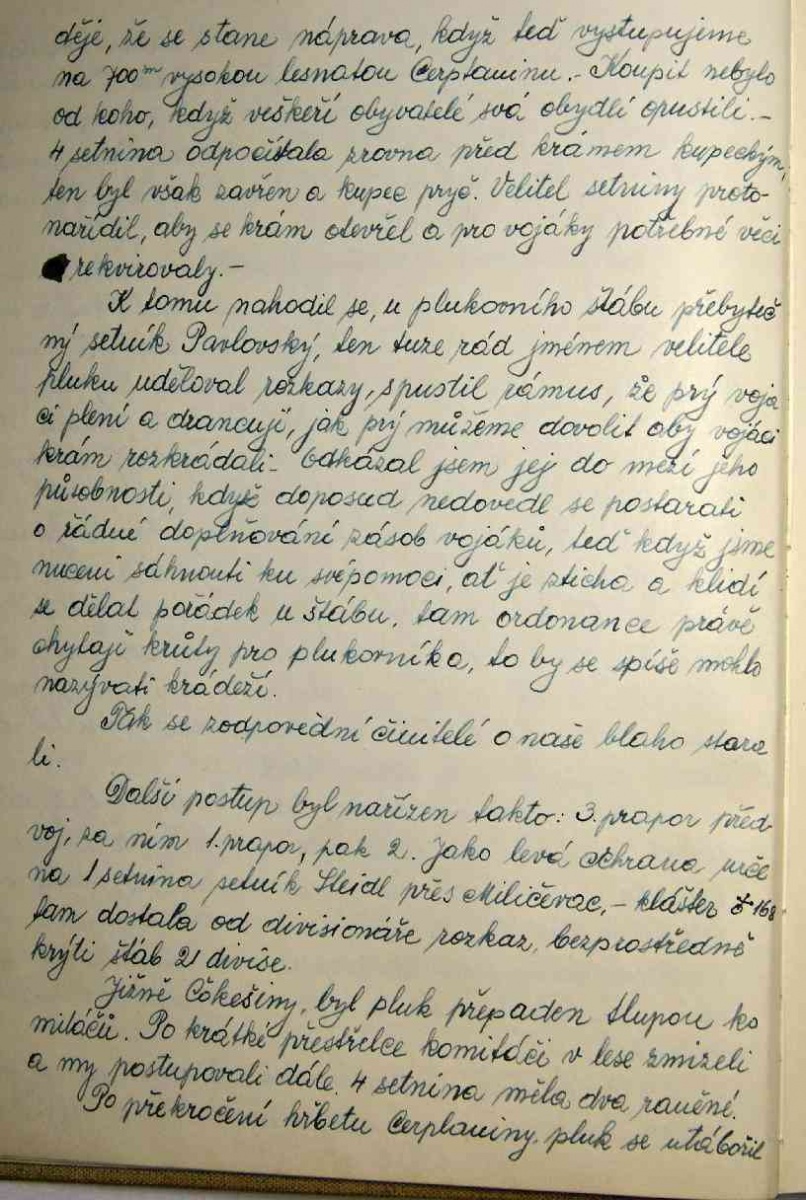 děje, že se stane náprava, když teď vystupujeme
na 700m vysokou lesnatou Cerplaninu. - Koupit nebylo
od koho, když veškeří obyvatelé svá obydlí opustili. -
4 setnina odpočívala zrovna před krámem kupeckým,
ten byl však zavřen a kupec pryč. Velitel setniny proto
nařídil, aby se krám otevřel a pro vojáky potřebné věci
rekvirovaly. -
K tomu nahodil se, u plukovního štábu přebyteč
ný setník Pavlovský, ten tuze rád jménem velitele
pluku uděloval rozkazy, spustil rámus, že prý vojá
ci plení a drancují, jak prý můžeme dovolit aby vojáci
krám rozkrádali. - Odkázal jsem jej do mezí jeho
působnosti, když doposud nedovedl se postarati
o řádné doplňování zásob vojáků, teď když jsme
nuceni sáhnouti ku svépomoci, ať je zticha a klidí
se dělat pořádek u štábu, tam ordonance právě
chytají krůty pro plukovníka, to by se spíše mohlo
nazývati krádeží.
Tak se zodpovědní činitelé o naše blaho stara
li.
Další postup byl nařízen takto: 3. prapor před-
voj, za ním 1. prapor, pak 2. Jako levá ochrana urče
na 1 setnina setník Steidl přes Miličevac, - klášter 168
tam dostala od divisionáře rozkaz, bezprostředně
krýti štáb 21 divise.
Jižně Cokešiny, byl pluk přepaden tlupou ko
mitáčů. Po krátké přestřelce komitáči v lese zmizeli
a my postupovali dále. 4 setnina měla dva raněné.
Po překročení hřbetu Cerplaniny pluk se utábořil